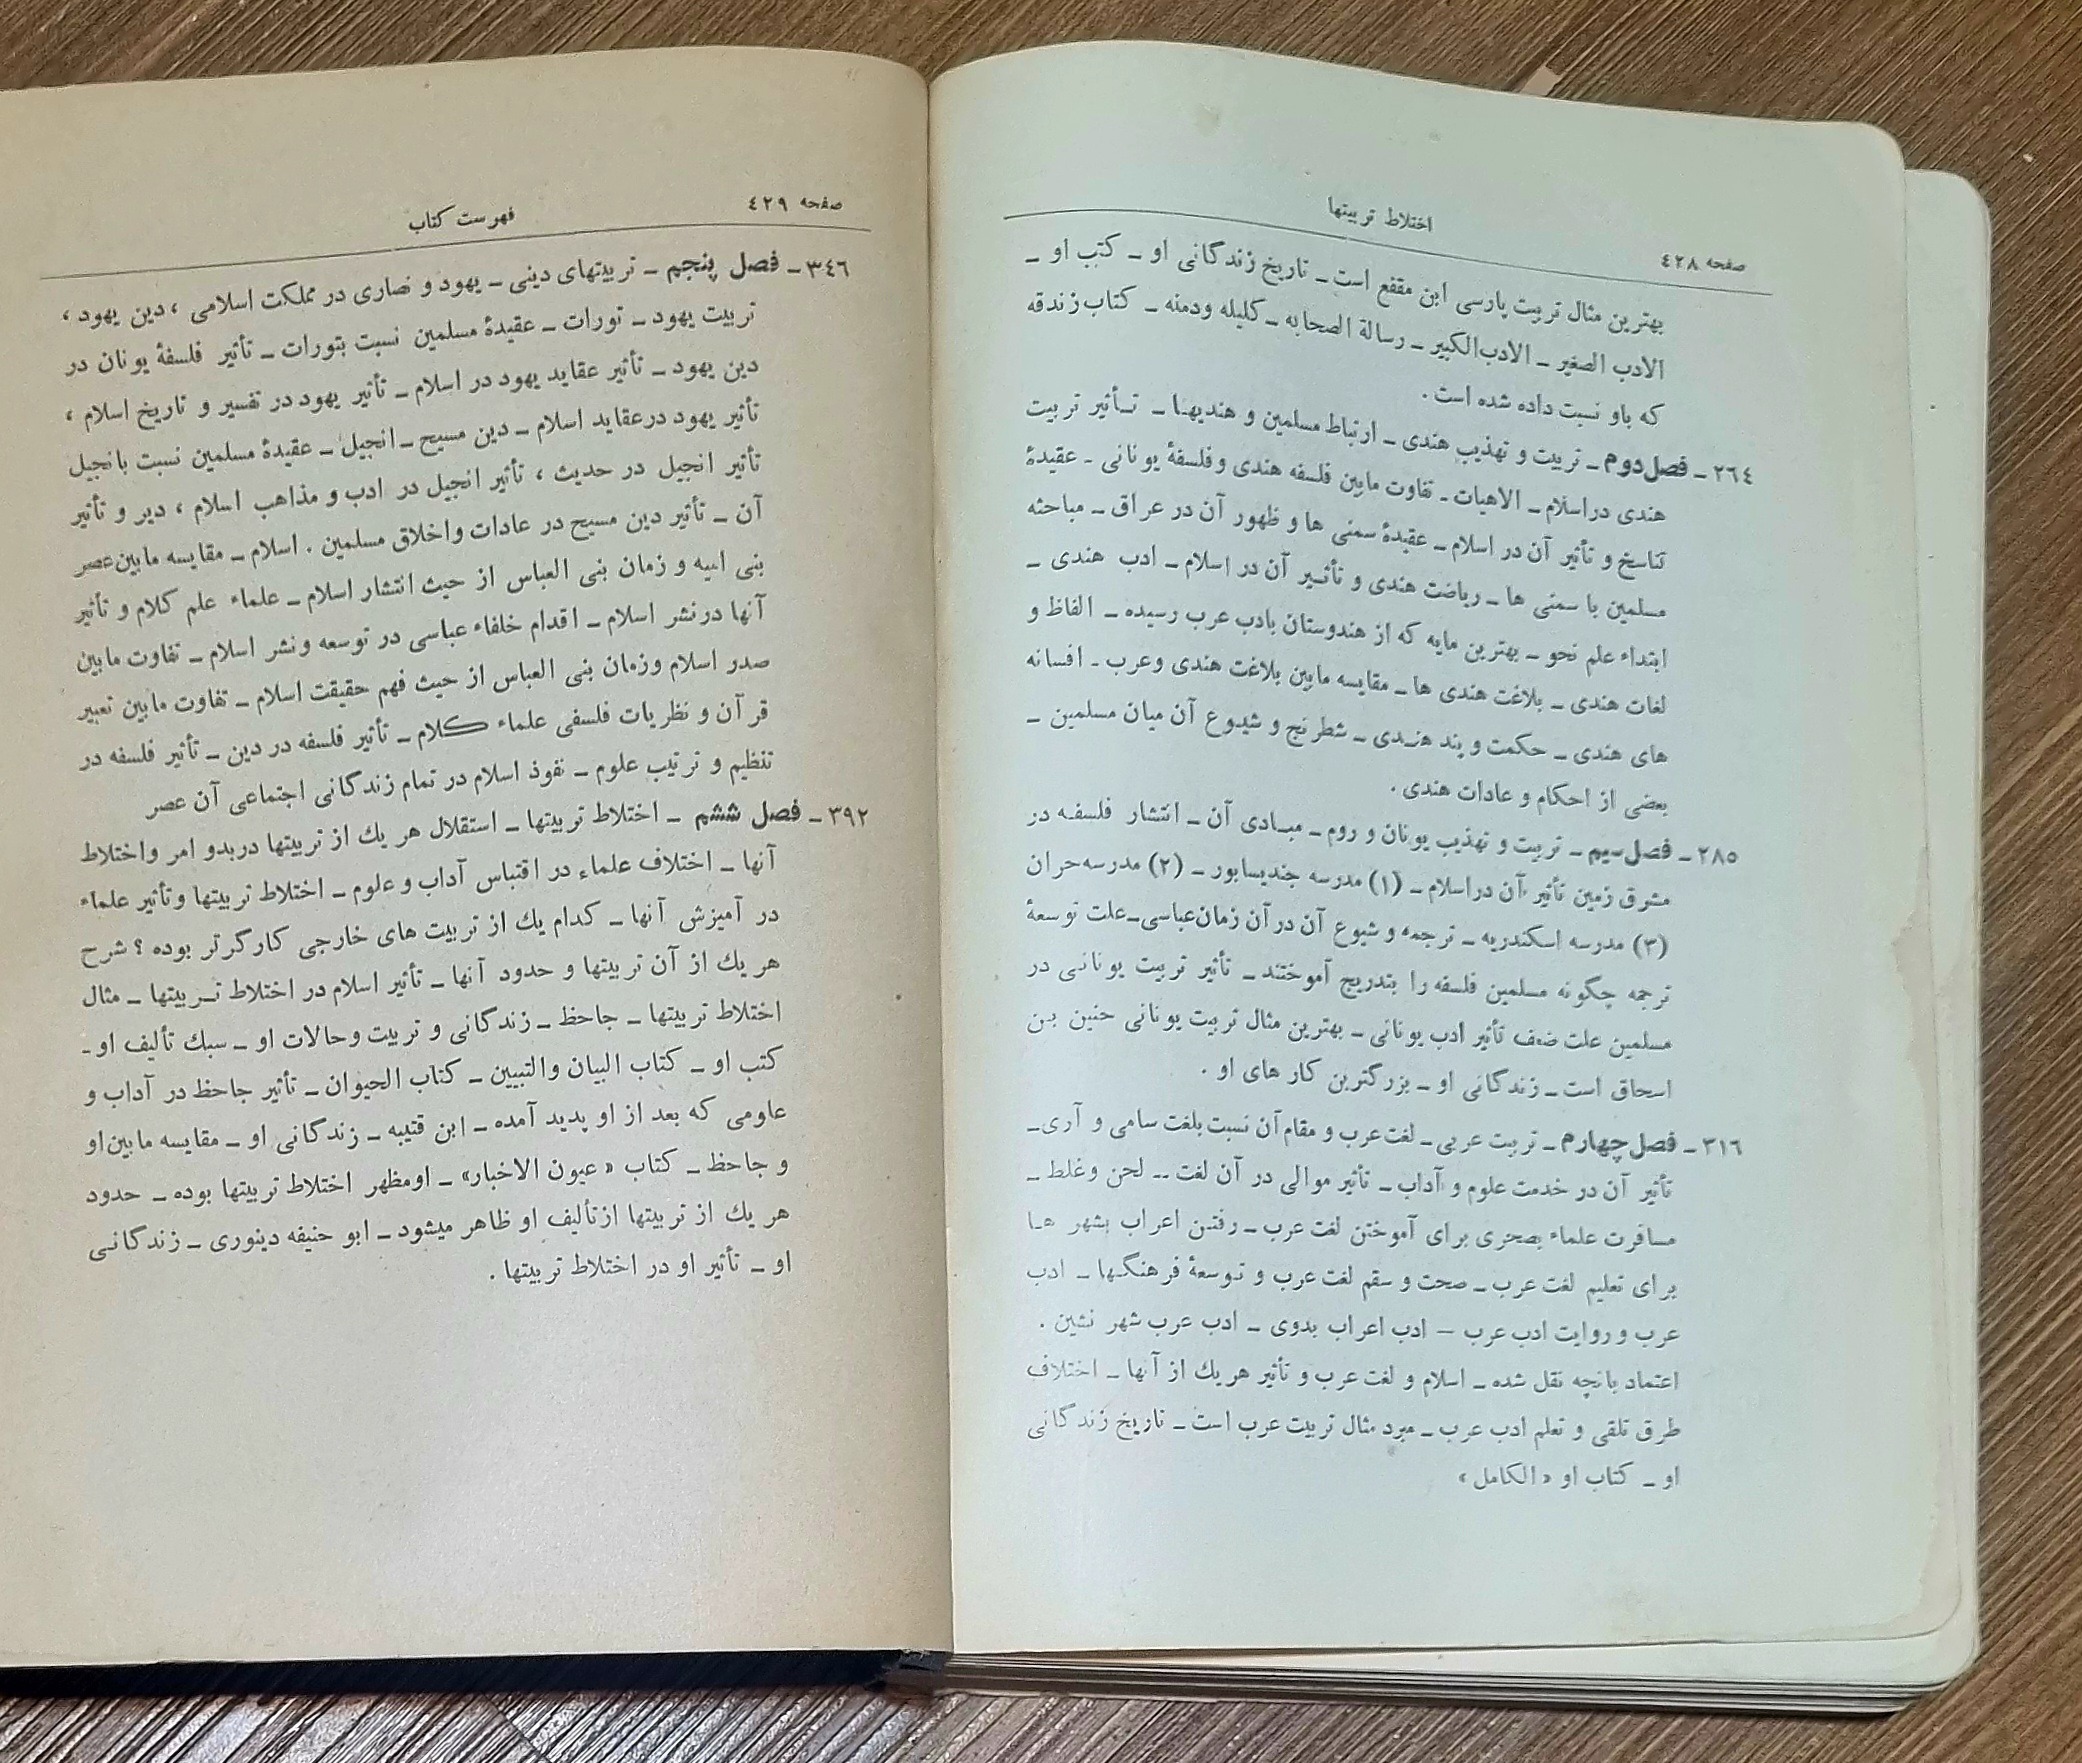 صفحه ٤٢٨
اختلاط تربیتها
بهترین مثال تربیت پارسی ابن مقفع است ـ تاریخ زندگانی او ـ کتب او ـ
الادب الصغیر ـ الادب‌الکبیر ـ رسالة الصحابه ـ کلیله ودمنه ـ کتاب زندقه
که باو نسبت داده شده است .
٢٦٤ ـ فصل دوم ـ تربیت و تهذیب هندی ـ ارتباط مسلمین و هندیها ـ تأثیر تربیت
هندی دراسلام ـ الاهیات ـ تفاوت مابین فلسفه هندی و فلسفهٔ یونانی ـ عقیدهٔ
تناسخ و تأثیر آن در اسلام ـ عقیدهٔ سمنی ها و ظهور آن در عراق ـ مباحثه
مسلمین با سمنی ها ـ ریاضت هندی و تأثیر آن در اسلام ـ ادب هندی ـ
ابتداء علم نحو ـ بهترین مایه که از هندوستان بادب عرب رسیده ـ الفاظ و
لغات هندی ـ بلاغت هندی ها ـ مقایسه مابین بلاغت هندی وعرب ـ افسانه
های هندی ـ حکمت و پند هندی ـ شطرنج و شیوع آن میان مسلمین ـ
بعضی از احکام و عادات هندی .
٢٨٥ ـ فصل سیم ـ تربیت و تهذیب یونان و روم ـ مبادی آن ـ انتشار فلسفه در
مشرق زمین تأثیر آن دراسلام ـ (١) مدرسه جندیسابور ـ (٢) مدرسه حران
(٣) مدرسه اسکندریه ـ ترجمه و شیوع آن در آن زمان‌عباسی ـ علت توسعهٔ
ترجمه چگونه مسلمین فلسفه را بتدریج آموختند ـ تأثیر تربیت یونانی در
مسلمین علت ضعف تأثیر ادب یونانی ـ بهترین مثال تربیت یونانی حنین بن
اسحاق است ـ زندگانی او ـ بزرگترین کار های او .
٣١٦ ـ فصل چهارم ـ تربیت عربی ـ لغت عرب و مقام آن نسبت بلغت سامی و آری ـ
تأثیر آن در خدمت علوم و آداب ـ تأثیر موالی در آن لغت ـ لحن وغلط ـ
مسافرت علماء بصحری برای آموختن لغت عرب ـ رفتن اعراب بشهر ها
برای تعلیم لغت عرب ـ صحت و سقم لغت عرب و توسعهٔ فرهنگها ـ ادب
عرب و روایت ادب عرب ـ ادب اعراب بدوی ـ ادب عرب شهر نشین .
اعتماد بانچه نقل شده ـ اسلام و لغت عرب و تأثیر هر یك از آنها ـ اختلاف
طرق تلقی و تعلم ادب عرب ـ مبرد مثال تربیت عرب است ـ تاریخ زندگانی
او ـ کتاب او «الکامل»
صفحه ٤٢٩
فهرست کتاب
٣٤٦ ـ فصل پنجم ـ تربیتهای دینی ـ یهود و نصاری در مملکت اسلامی ، دین یهود ،
تربیت یهود ـ تورات ـ عقیدهٔ مسلمین نسبت بتورات ـ تأثیر فلسفهٔ یونان در
دین یهود ـ تأثیر عقاید یهود در اسلام ـ تأثیر یهود در تفسیر و تاریخ اسلام ،
تأثیر یهود درعقاید اسلام ـ دین مسیح ـ انجیل ـ عقیدهٔ مسلمین نسبت بانجیل
تأثیر انجیل در حدیث ، تأثیر انجیل در ادب و مذاهب اسلام ، دیر و تأثیر
آن ـ تأثیر دین مسیح در عادات واخلاق مسلمین . اسلام ـ مقایسه مابین عصر
بنی امیه و زمان بنی العباس از حیث انتشار اسلام ـ علماء علم کلام و تأثیر
آنها درنشر اسلام ـ اقدام خلفاء عباسی در توسعه ونشر اسلام ـ تفاوت مابین
صدر اسلام وزمان بنی العباس از حیث فهم حقیقت اسلام ـ تفاوت مابین تعبیر
قرآن و نظریات فلسفی علماء کلام ـ تأثیر فلسفه در دین ـ تأثیر فلسفه در
تنظیم و ترتیب علوم ـ نفوذ اسلام در تمام زندگانی اجتماعی آن عصر
٣٩٢ ـ فصل ششم ـ اختلاط تربیتها ـ استقلال هر یك از تربیتها دربدو امر واختلاط
آنها ـ اختلاف علماء در اقتباس آداب و علوم ـ اختلاط تربیتها وتأثیر علماء
در آمیزش آنها ـ کدام یك از تربیت های خارجی کارگرتر بوده ؟ شرح
هر یك از آن تربیتها و حدود آنها ـ تأثیر اسلام در اختلاط تربیتها ـ مثال
اختلاط تربیتها ـ جاحظ ـ زندگانی و تربیت وحالات او ـ سبك تألیف او ـ
کتب او ـ کتاب البیان والتبیین ـ کتاب الحیوان ـ تأثیر جاحظ در آداب و
علومی که بعد از او پدید آمده ـ ابن قتیبه ـ زندگانی او ـ مقایسه مابین او
و جاحظ ـ کتاب «عیون الاخبار» ـ اومظهر اختلاط تربیتها بوده ـ حدود
هر یك از تربیتها ازتألیف او ظاهر میشود ـ ابو حنیفه دینوری ـ زندگانی
او ـ تأثیر او در اختلاط تربیتها .